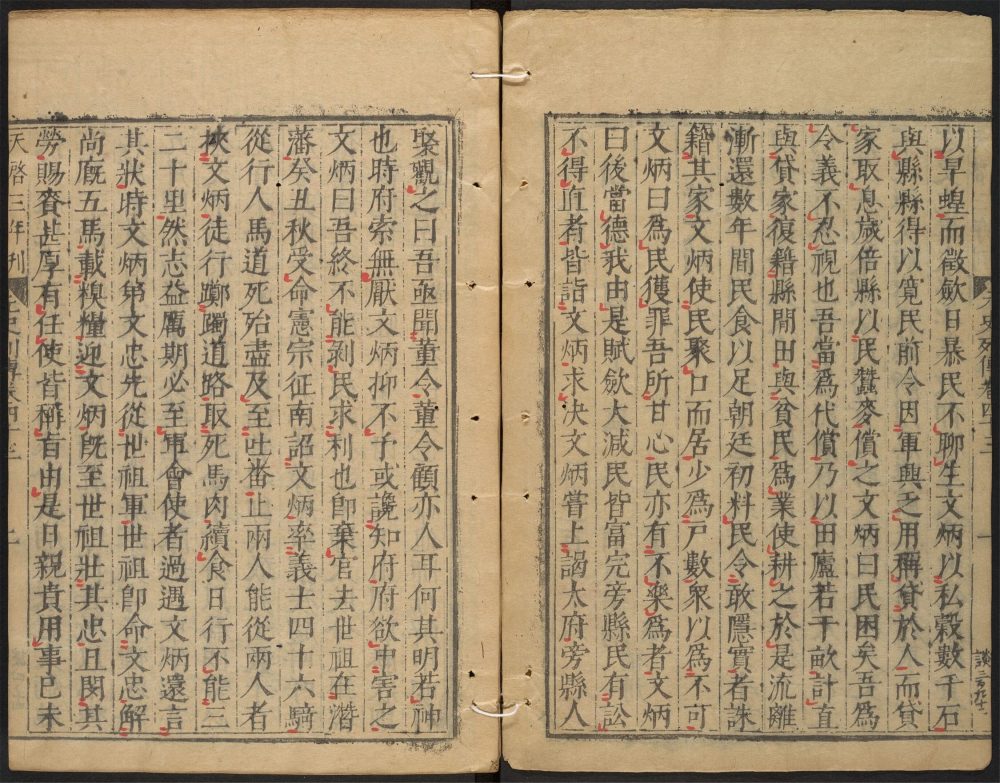 以旱蝗而徵斂日暴民不聊生文炳以私穀數千石
與縣縣得以寬民前令因軍興乏用稱貸於人而貸
家取息歲倍縣以民蠶麥償之文炳曰民困矣吾爲
令義不忍視也吾當爲代償乃以田廬若干畝計直
與貸家復籍縣閒田與貧民爲業使耕之於是流離
漸還數年間民食以足朝廷初料民令敢隱實者誅
籍其家文炳使民聚口而居少爲戸數衆以爲不可
文炳曰爲民獲罪吾所甘心民亦有不樂爲者文炳
曰後當德我由是賦斂大減民皆富完旁縣民有訟
不得直者皆詣文炳求决文炳嘗上謁大府旁縣人
聚觀之曰吾亟聞董令董令顧亦人耳何其明若神
也時府索無厭文炳抑不予或讒知府府欲中害之
文炳曰吾終不能剥民求利也卽棄官去世祖在潛
藩癸丑秋受命憲宗征南詔文炳率義士四十六騎
從行人馬道死殆盡及至吐番止兩人能從兩人者
挾文炳徒行躑躅道路取死馬肉續食日行不能三
二十里然志益厲期必至軍會使者過遇文炳還言
其狀時文炳弟文忠先從世祖軍世祖卽命文忠解
尚廐五馬載糗糧迎文炳旣至世祖壯其忠且閔其
勞賜賚甚厚有任使皆稱旨由是日親貴用事已未
天啓三年刊